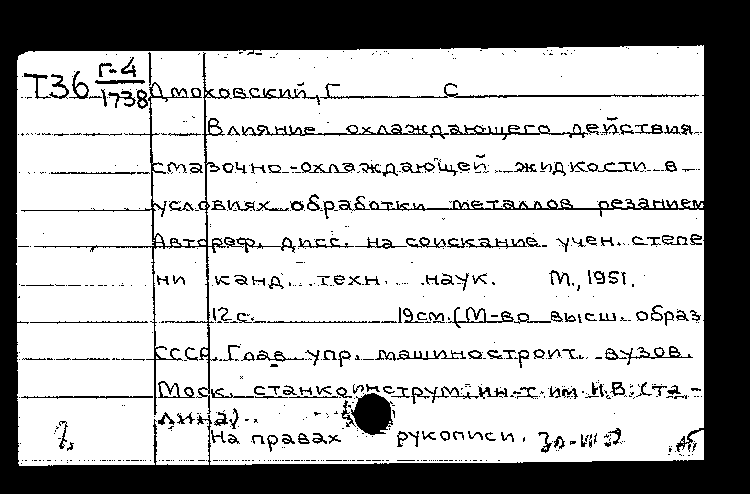 Т36 Г-4/1738 Дмоховский, Г С
Влияние охлаждающего действия
смазочно-охлаждающей жидкости в
условиях обработки металлов резанием
Автореф. дисс. на соискание учен. степе
ни канд. техн. наук. М., 1951.
12 с. 19 см. (М-во высш. образ
СССР. Глав. упр. машиностроит. вузов.
Моск. станкоинструм. ин-т им. И.В. Ста-
лина).
На правах рукописи.